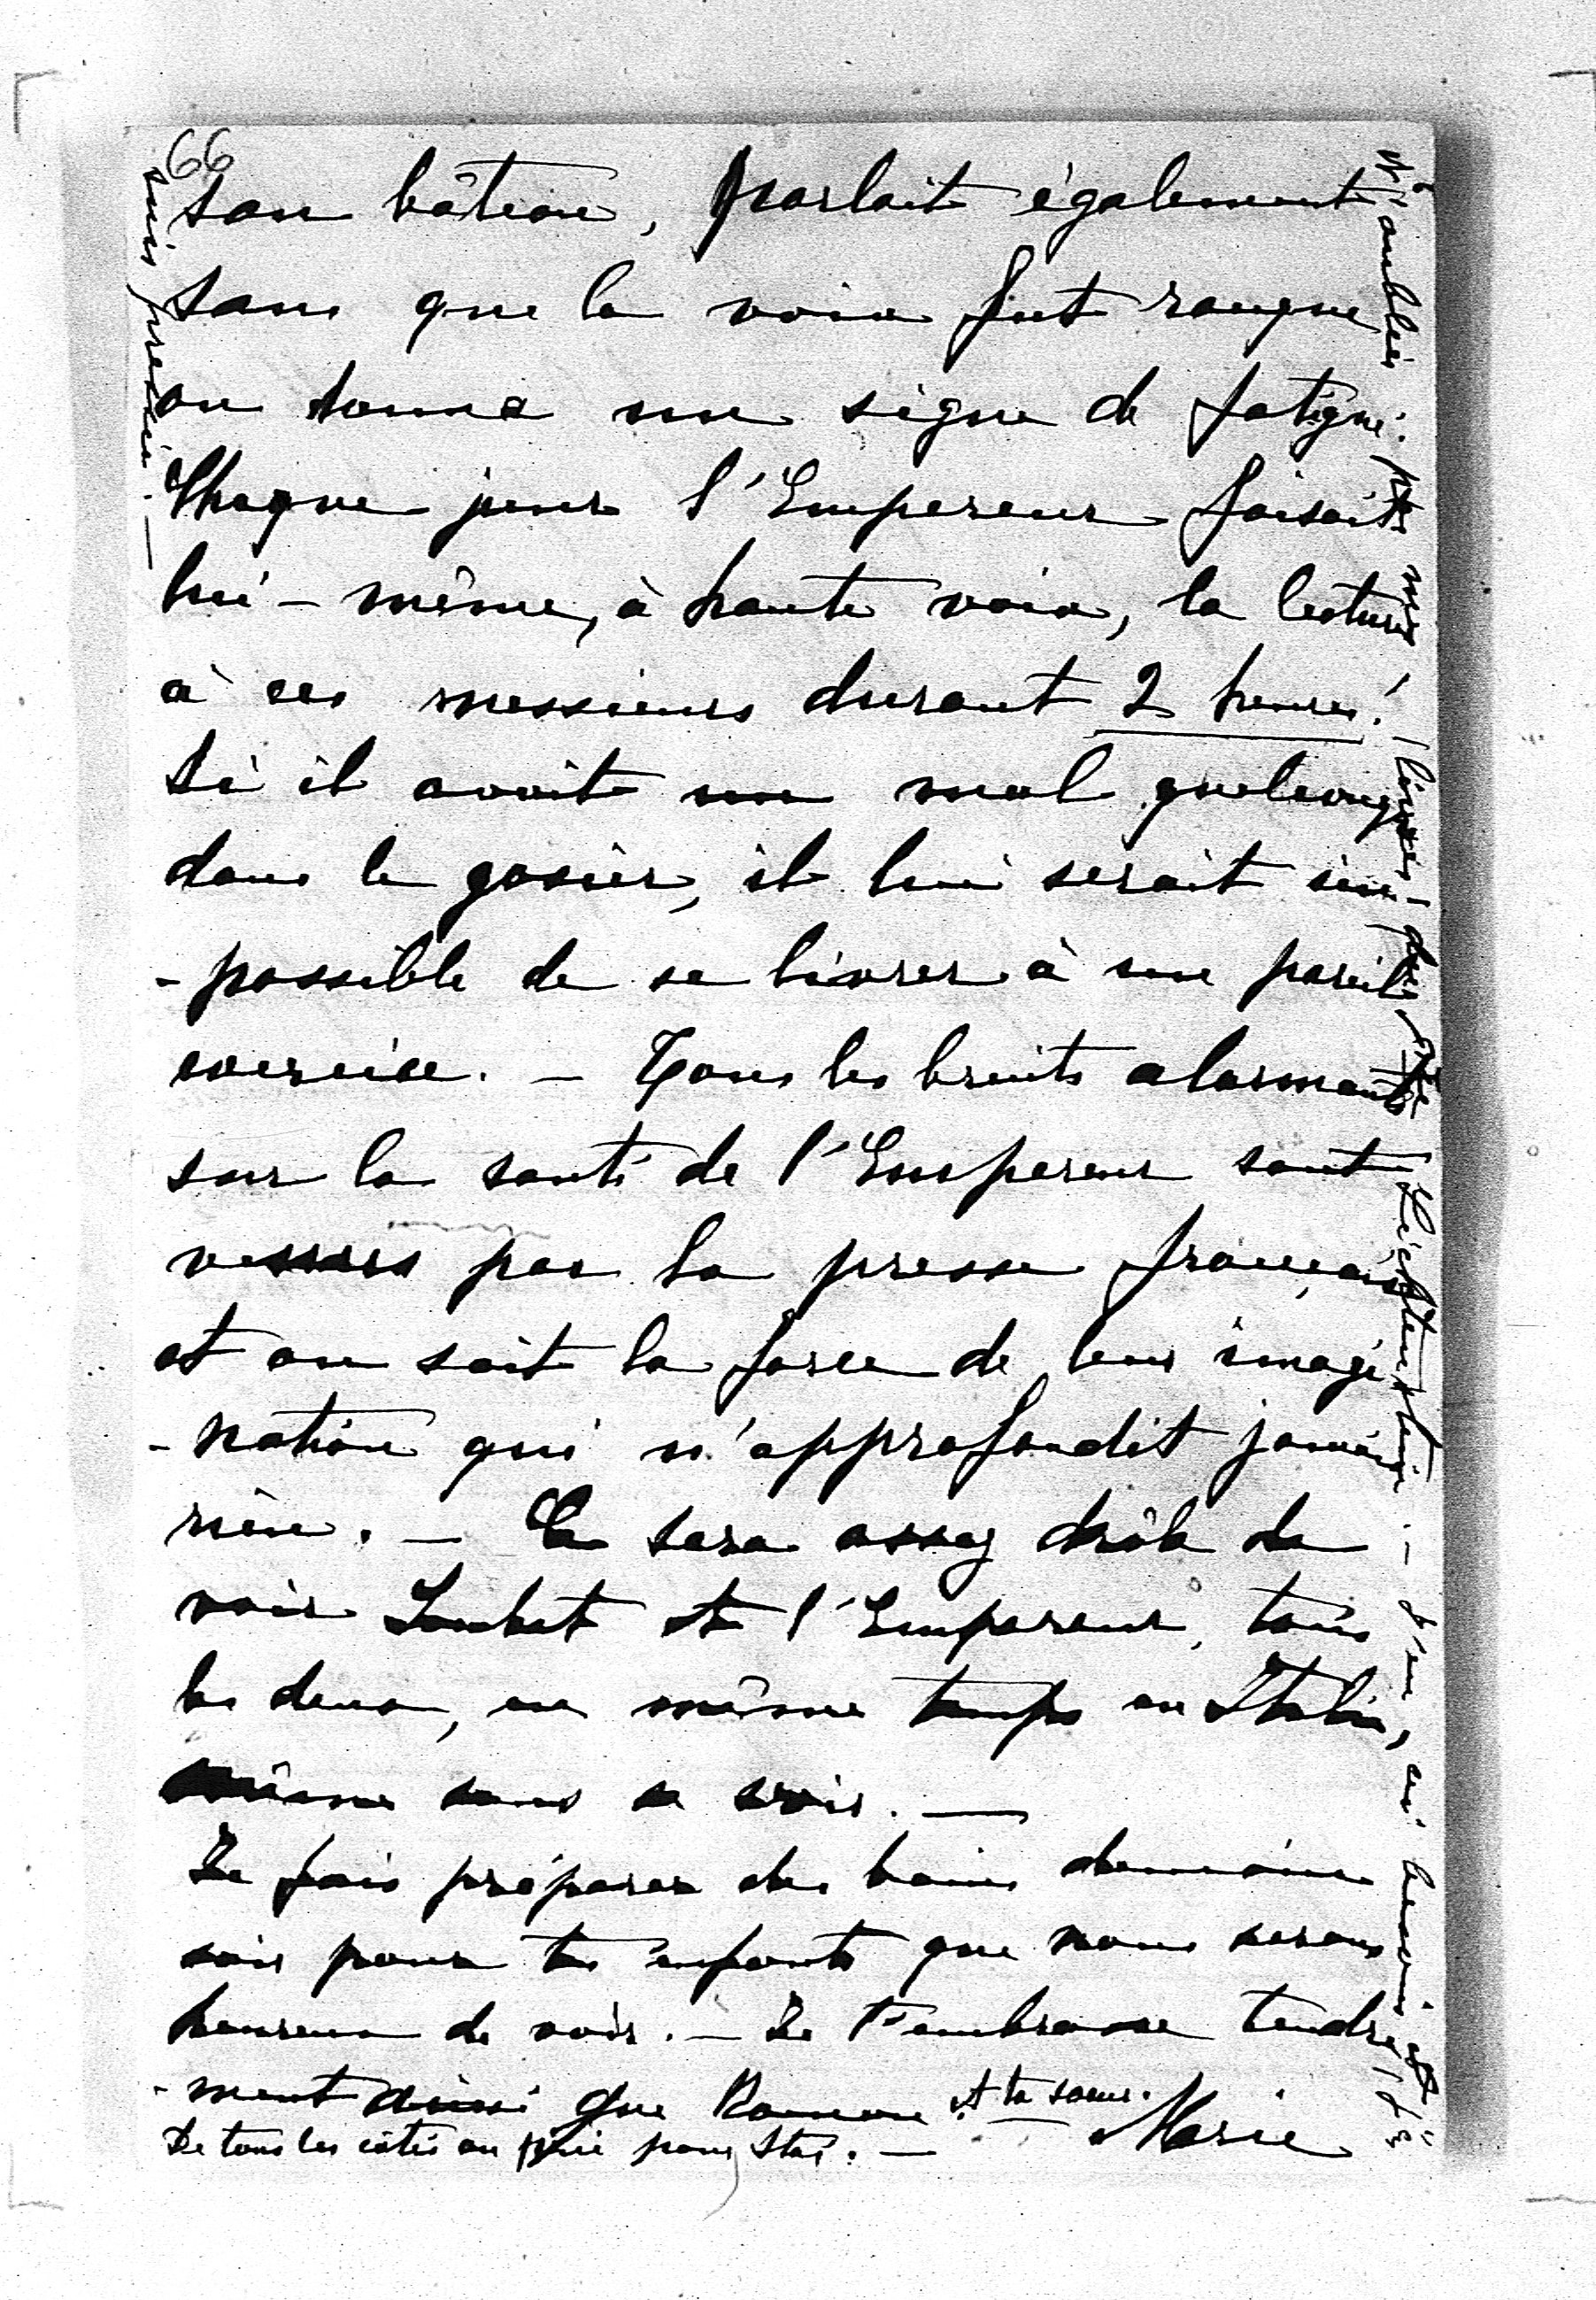 66
son bâteau, parlait également
sans que la voix fut rauque
ou donna un signe de fatigue.
Chaque jour l'Empereur faisait
lui-même, à haute voix, la lecture
à ces messieurs durant 2 heures!
Si il avait un mal quelconque
dans le gosier, il lui serait im
-possible de se livrer à un pareil
exercice. — Tous les bruits alarmants
sur la santé de l'Empereur sont
venus par la presse française
et on sait la force de leur imagi
-nation qui n'approfondit jamais
rien. — Ce sera assez drôle de
voir Loubet et l'Empereur, tous
les deux, en même temps en Italie,
même sans se voir. —
Je fais préparer des bains demain
soir pour tes enfants que nous serons
heureux de voir. — Je t'embrasse tendre
-ment ainsi que Ramon et ta soeur. — Marie
De tous les côtés on prie pour Stas. —
N'oubliez pas mes livres
Lichtenstein. — J'en ai besoin et j'en
suis pressée. —